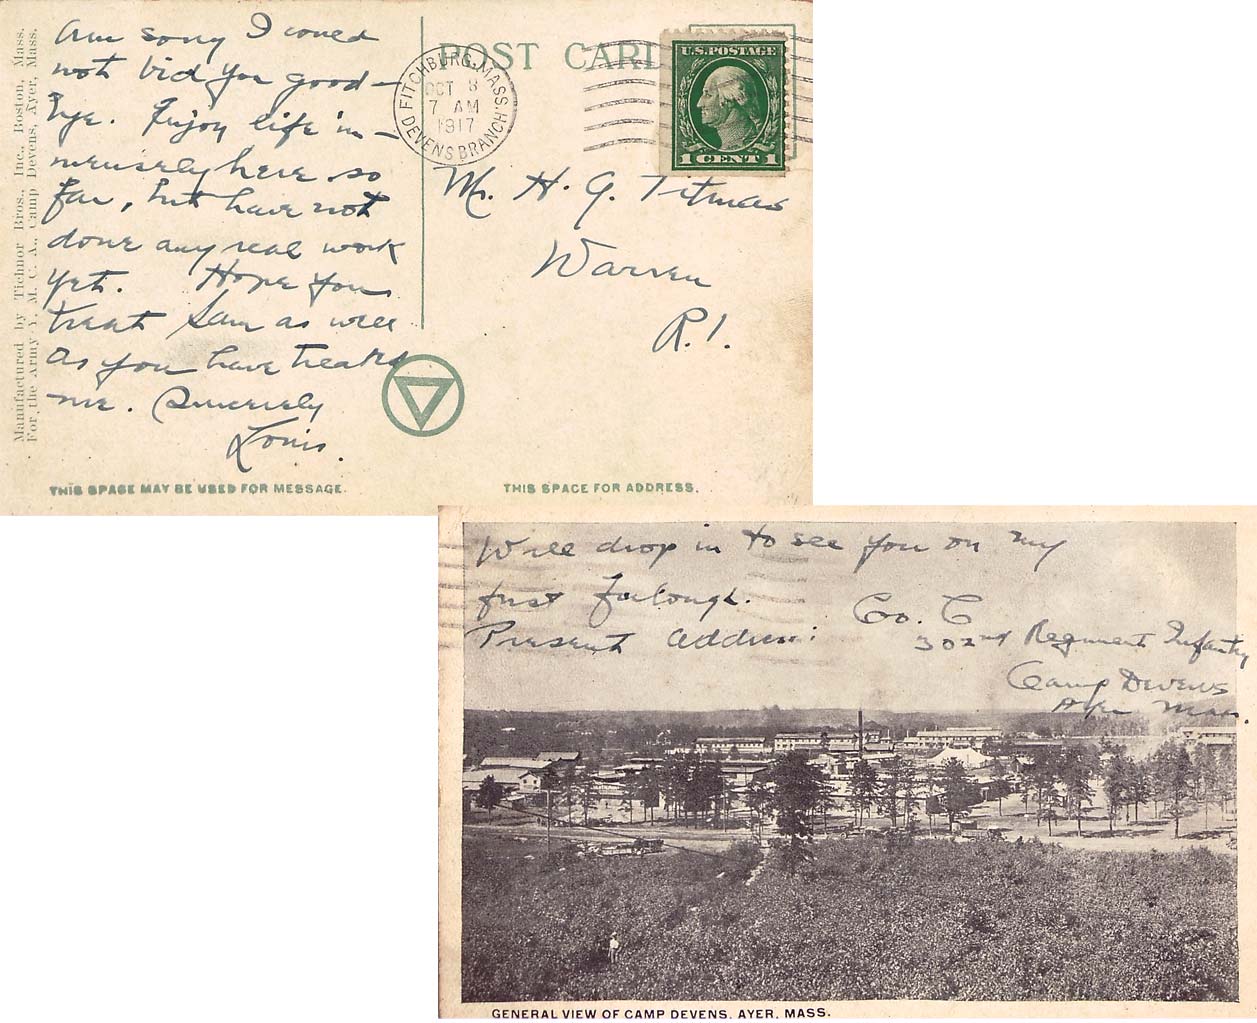 Manufactured by Tichnor Bros., Inc., Boston, Mass.
For the Army Y. M. C. A., Camp Devens, Ayer, Mass.
POST CARD
U.S. POSTAGE
1 CENT 1
FITCHBURG, MASS.
OCT 8
7 AM
1917
DEVENS BRANCH
Am sorry I could
not bid you good-
bye. Enjoy life im-
mensely here so
far, but have not
done any real work
yet. Hope you
treat Sam as well
as you have treated
me. Sincerely
Louis.
Mr. H. G. Titmas
Warren
R.I.
THIS SPACE MAY BE USED FOR MESSAGE.
THIS SPACE FOR ADDRESS.
Will drop in to see you on my
first furlough.
Present address: Co. C
302nd Regiment Infantry
Camp Devens
Ayer Mass.
GENERAL VIEW OF CAMP DEVENS, AYER, MASS.